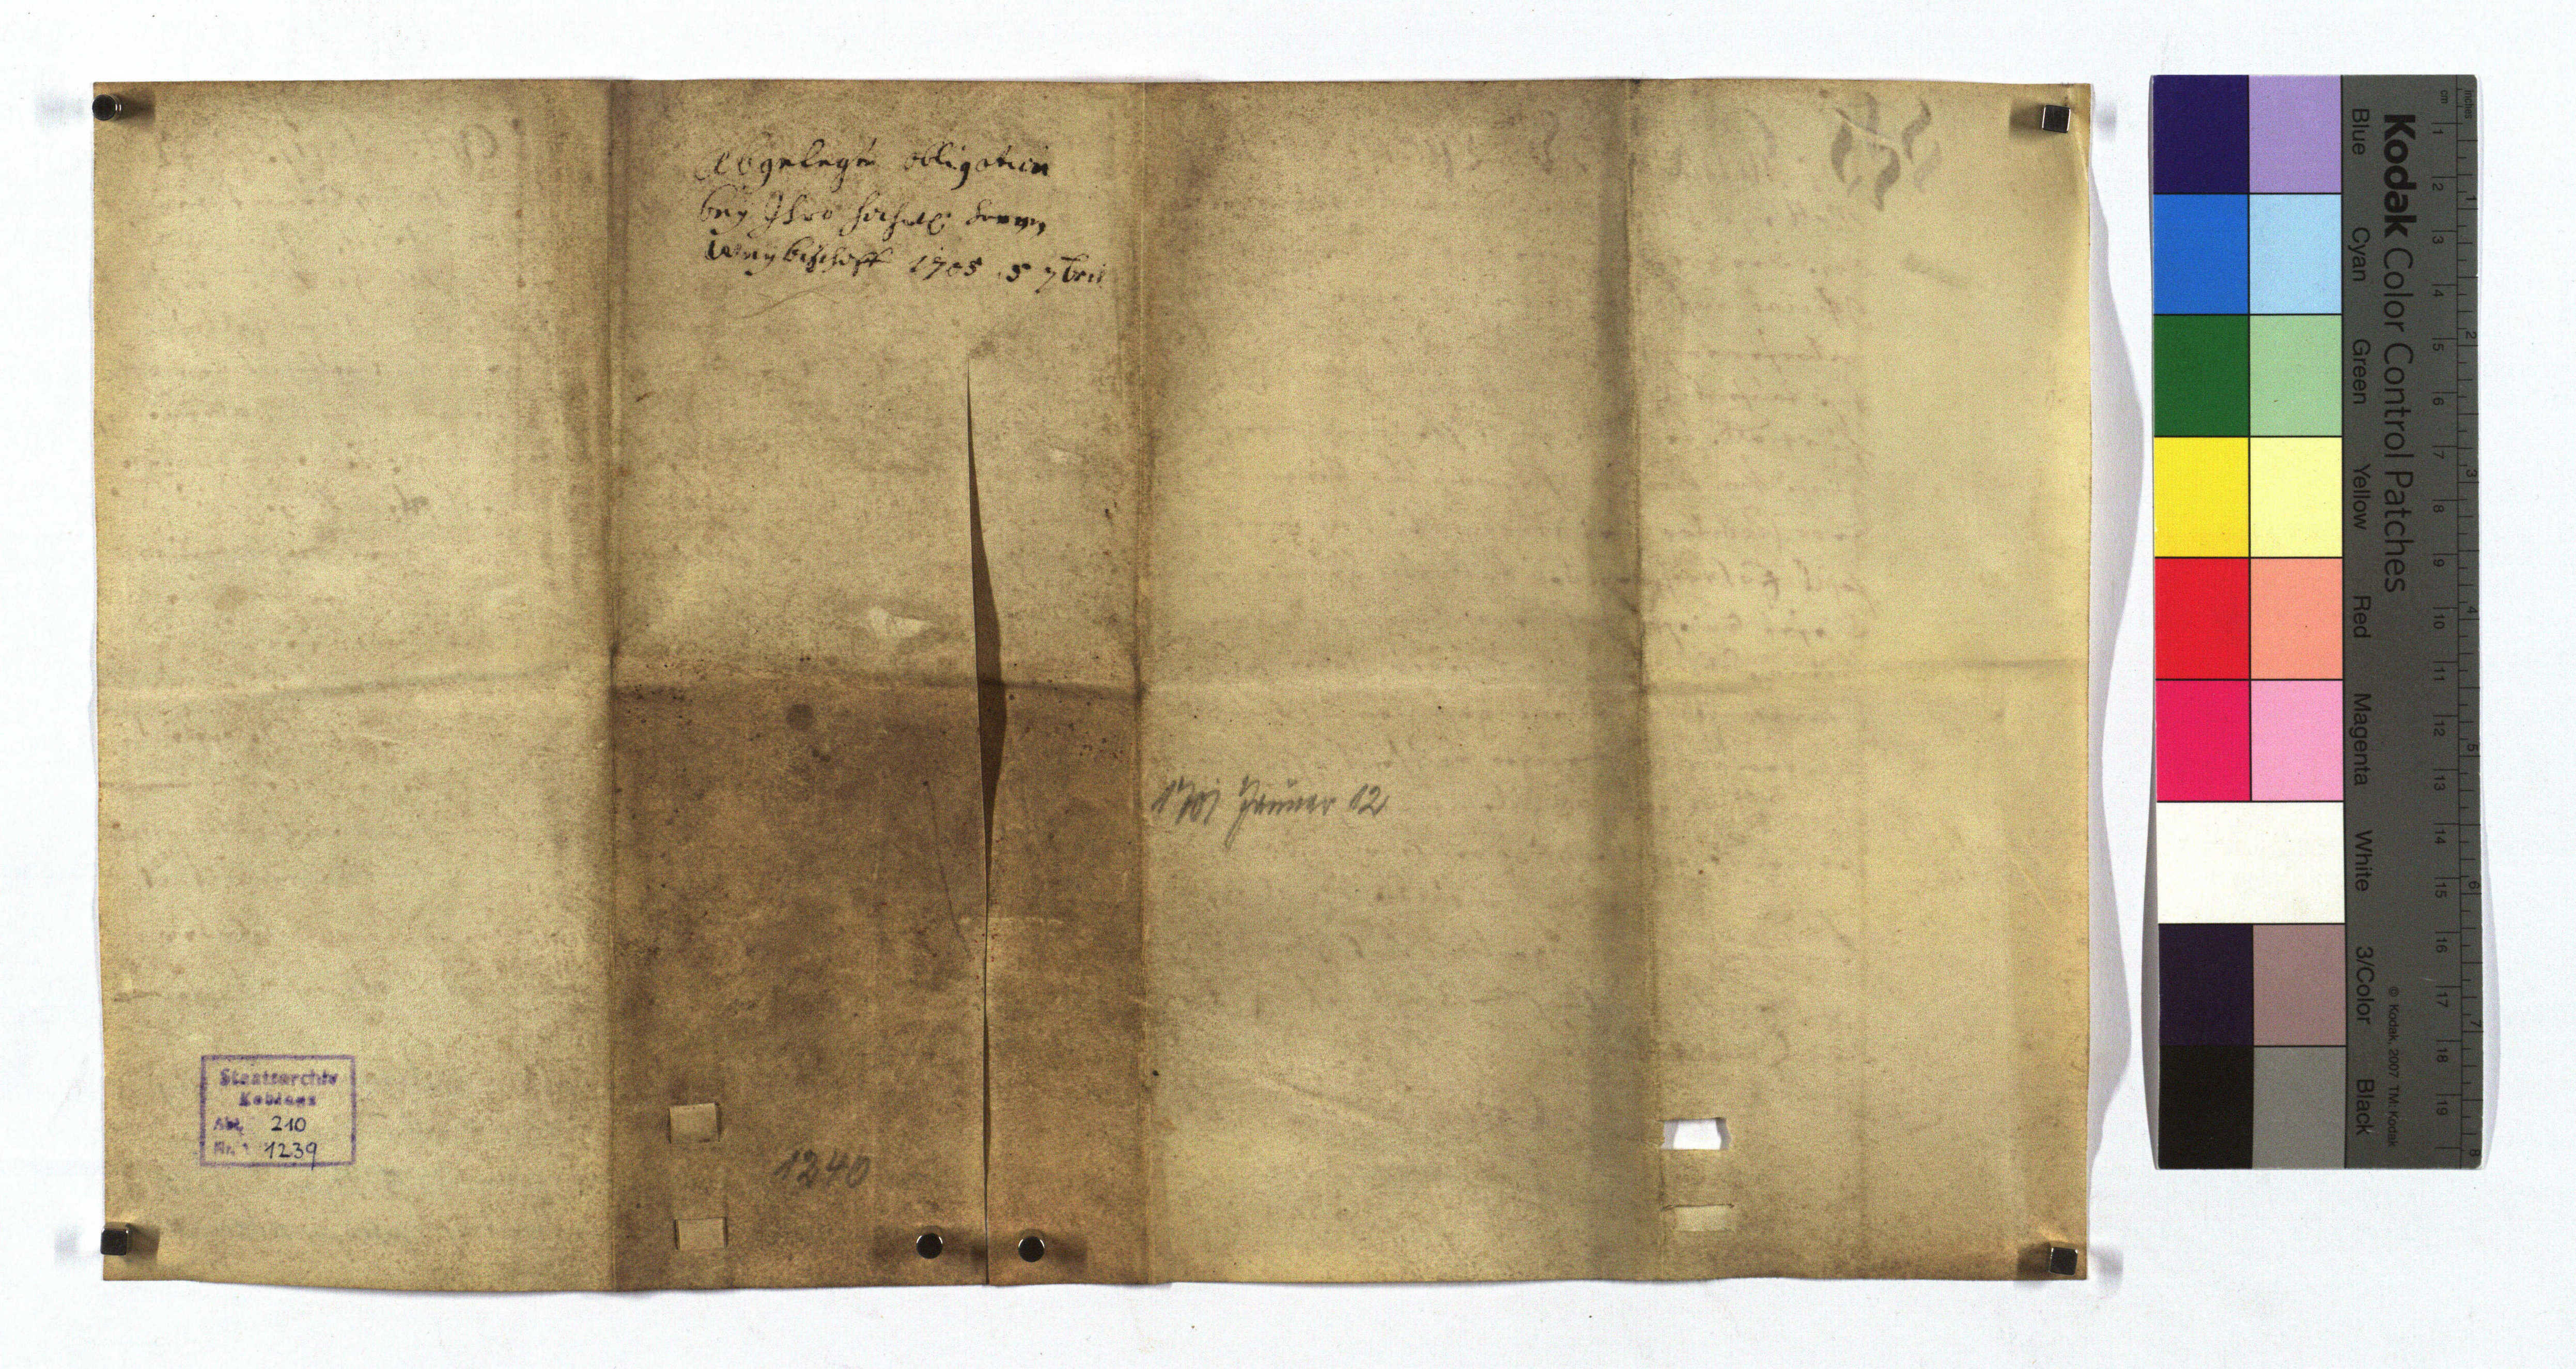 abgelegte obligation
bey Ihro hochw. herrn
Weybischoff 1705 5 7bris
1701 Januar 12
1240
Staatsarchiv
Koblenz
Abt. 210
Nr. 1239
Kodak Color Control Patches
Blue Cyan Green Yellow Red Magenta White 3/Color Black
© Kodak, 2007 TM: Kodak
cm 1 2 3 4 5 6 7 8 9 10 11 12 13 14 15 16 17 18 19
inches 1 2 3 4 5 6 7 8